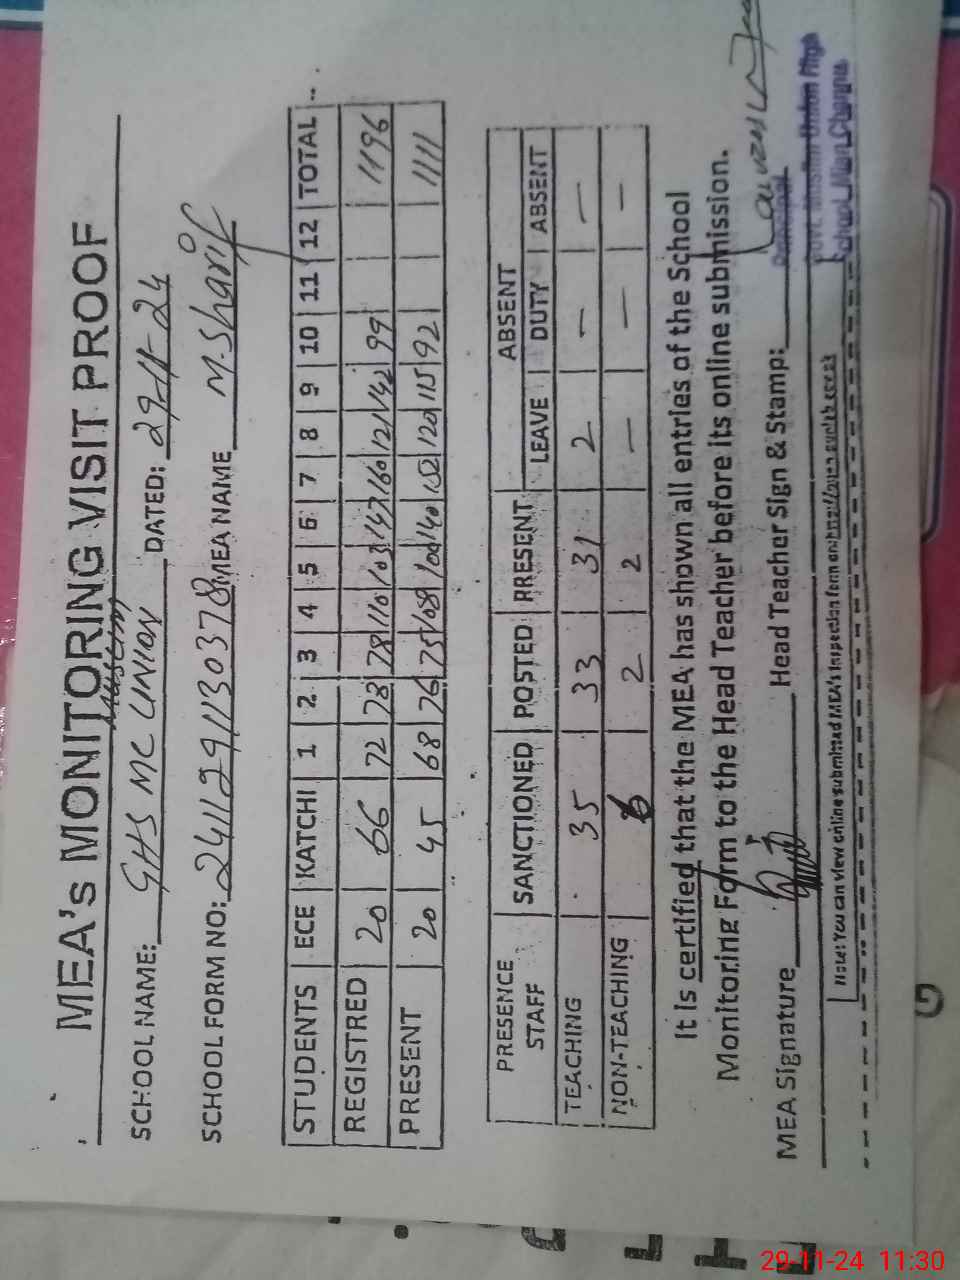 MEA's MONITORING VISIT PROOF
Muslim
SCHOOL NAME: GHS MC UNION DATED: 29-11-24
SCHOOL FORM NO: 24112911303708 MEA NAME M. Sharif
STUDENTS ECE KATCHI 1 2 3 4 5 6 7 8 9 10 11 12 TOTAL
REGISTRED 20 66 72 78 78 110 103 147 160 121 142 99 1196
PRESENT 20 45 68 76 75 108 100 140 152 120 115 92 1111
PRESENCE STAFF SANCTIONED POSTED PRESENT ABSENT
LEAVE DUTY ABSENT
TEACHING 35 33 31 2 — —
NON-TEACHING 6 2 2 — — —
It is certified that the MEA has shown all entries of the School
Monitoring Form to the Head Teacher before its online submission.
MEA Signature Head Teacher Sign & Stamp:
Principal
Govt. Muslim Union High
School, Mian Channu
Note: You can view online submitted MEA's inspection form on
29-11-24 11:30